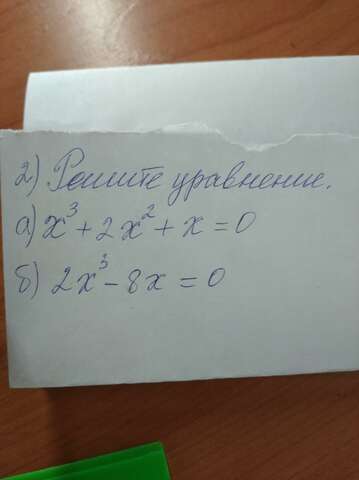 2) Решите уравнение.
а) x³ + 2x² + x = 0
б) 2x³ - 8x = 0